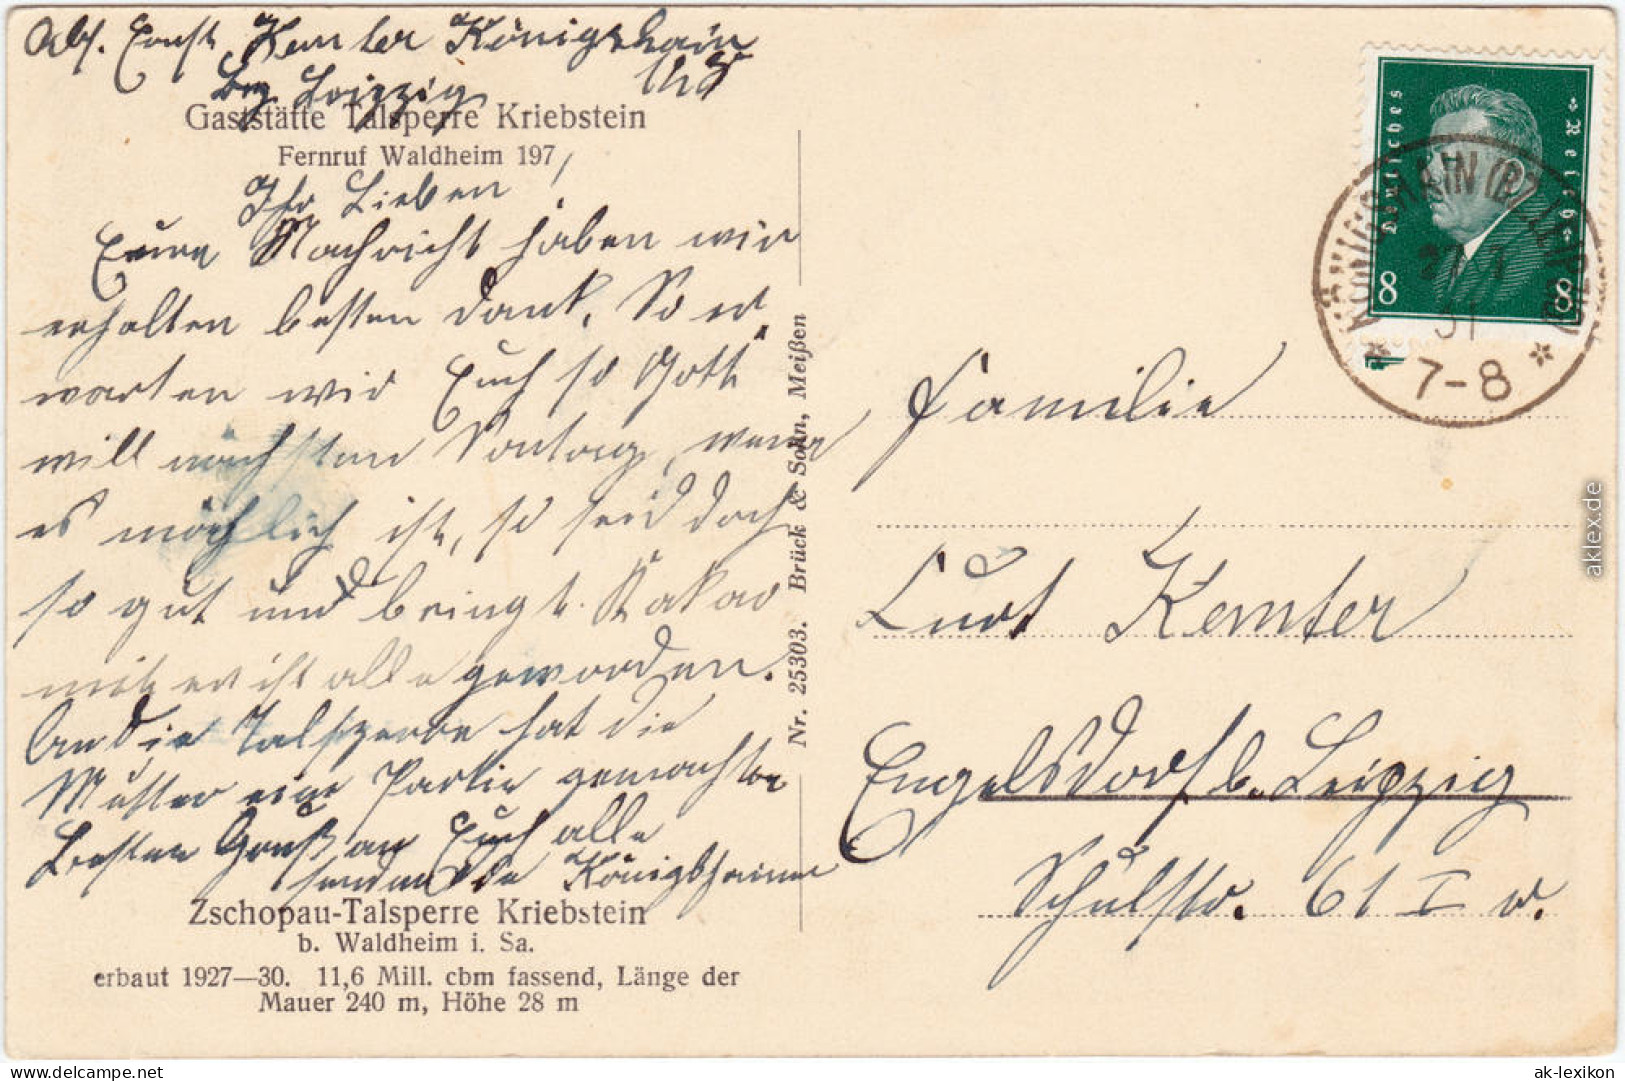 Abs. Ernst Kemter Königshain
Bez Leipzig
Gaststätte Talsperre Kriebstein
Fernruf Waldheim 197
Ihr Lieben!
Eure Nachricht haben wir
erhalten besten Dank. So er
warten wir Euch so Gott
will nächsten Sontag, wenn
es möchlich ist, so seid doch
so gut und bringt Kakao
mit er ist alle geworden.
An die Talsperre hat die
Mutter eine Partie gemacht
Besten Gruß an Euch alle
senden die Königshainer
Zschopau-Talsperre Kriebstein
b. Waldheim i. Sa.
erbaut 1927—30. 11,6 Mill. cbm fassend, Länge der
Mauer 240 m, Höhe 28 m
Nr. 25303. Brück & Sohn, Meißen
Deutsches Reich
8 8
KÖNIGSHAIN (BZ. LEIPZIG)
31
7-8
Familie
Kurt Kemter
Engelsdorf b. Leipzig
Schulstr. 61 I r.
aklex.de
www.delcampe.net
ak-lexikon